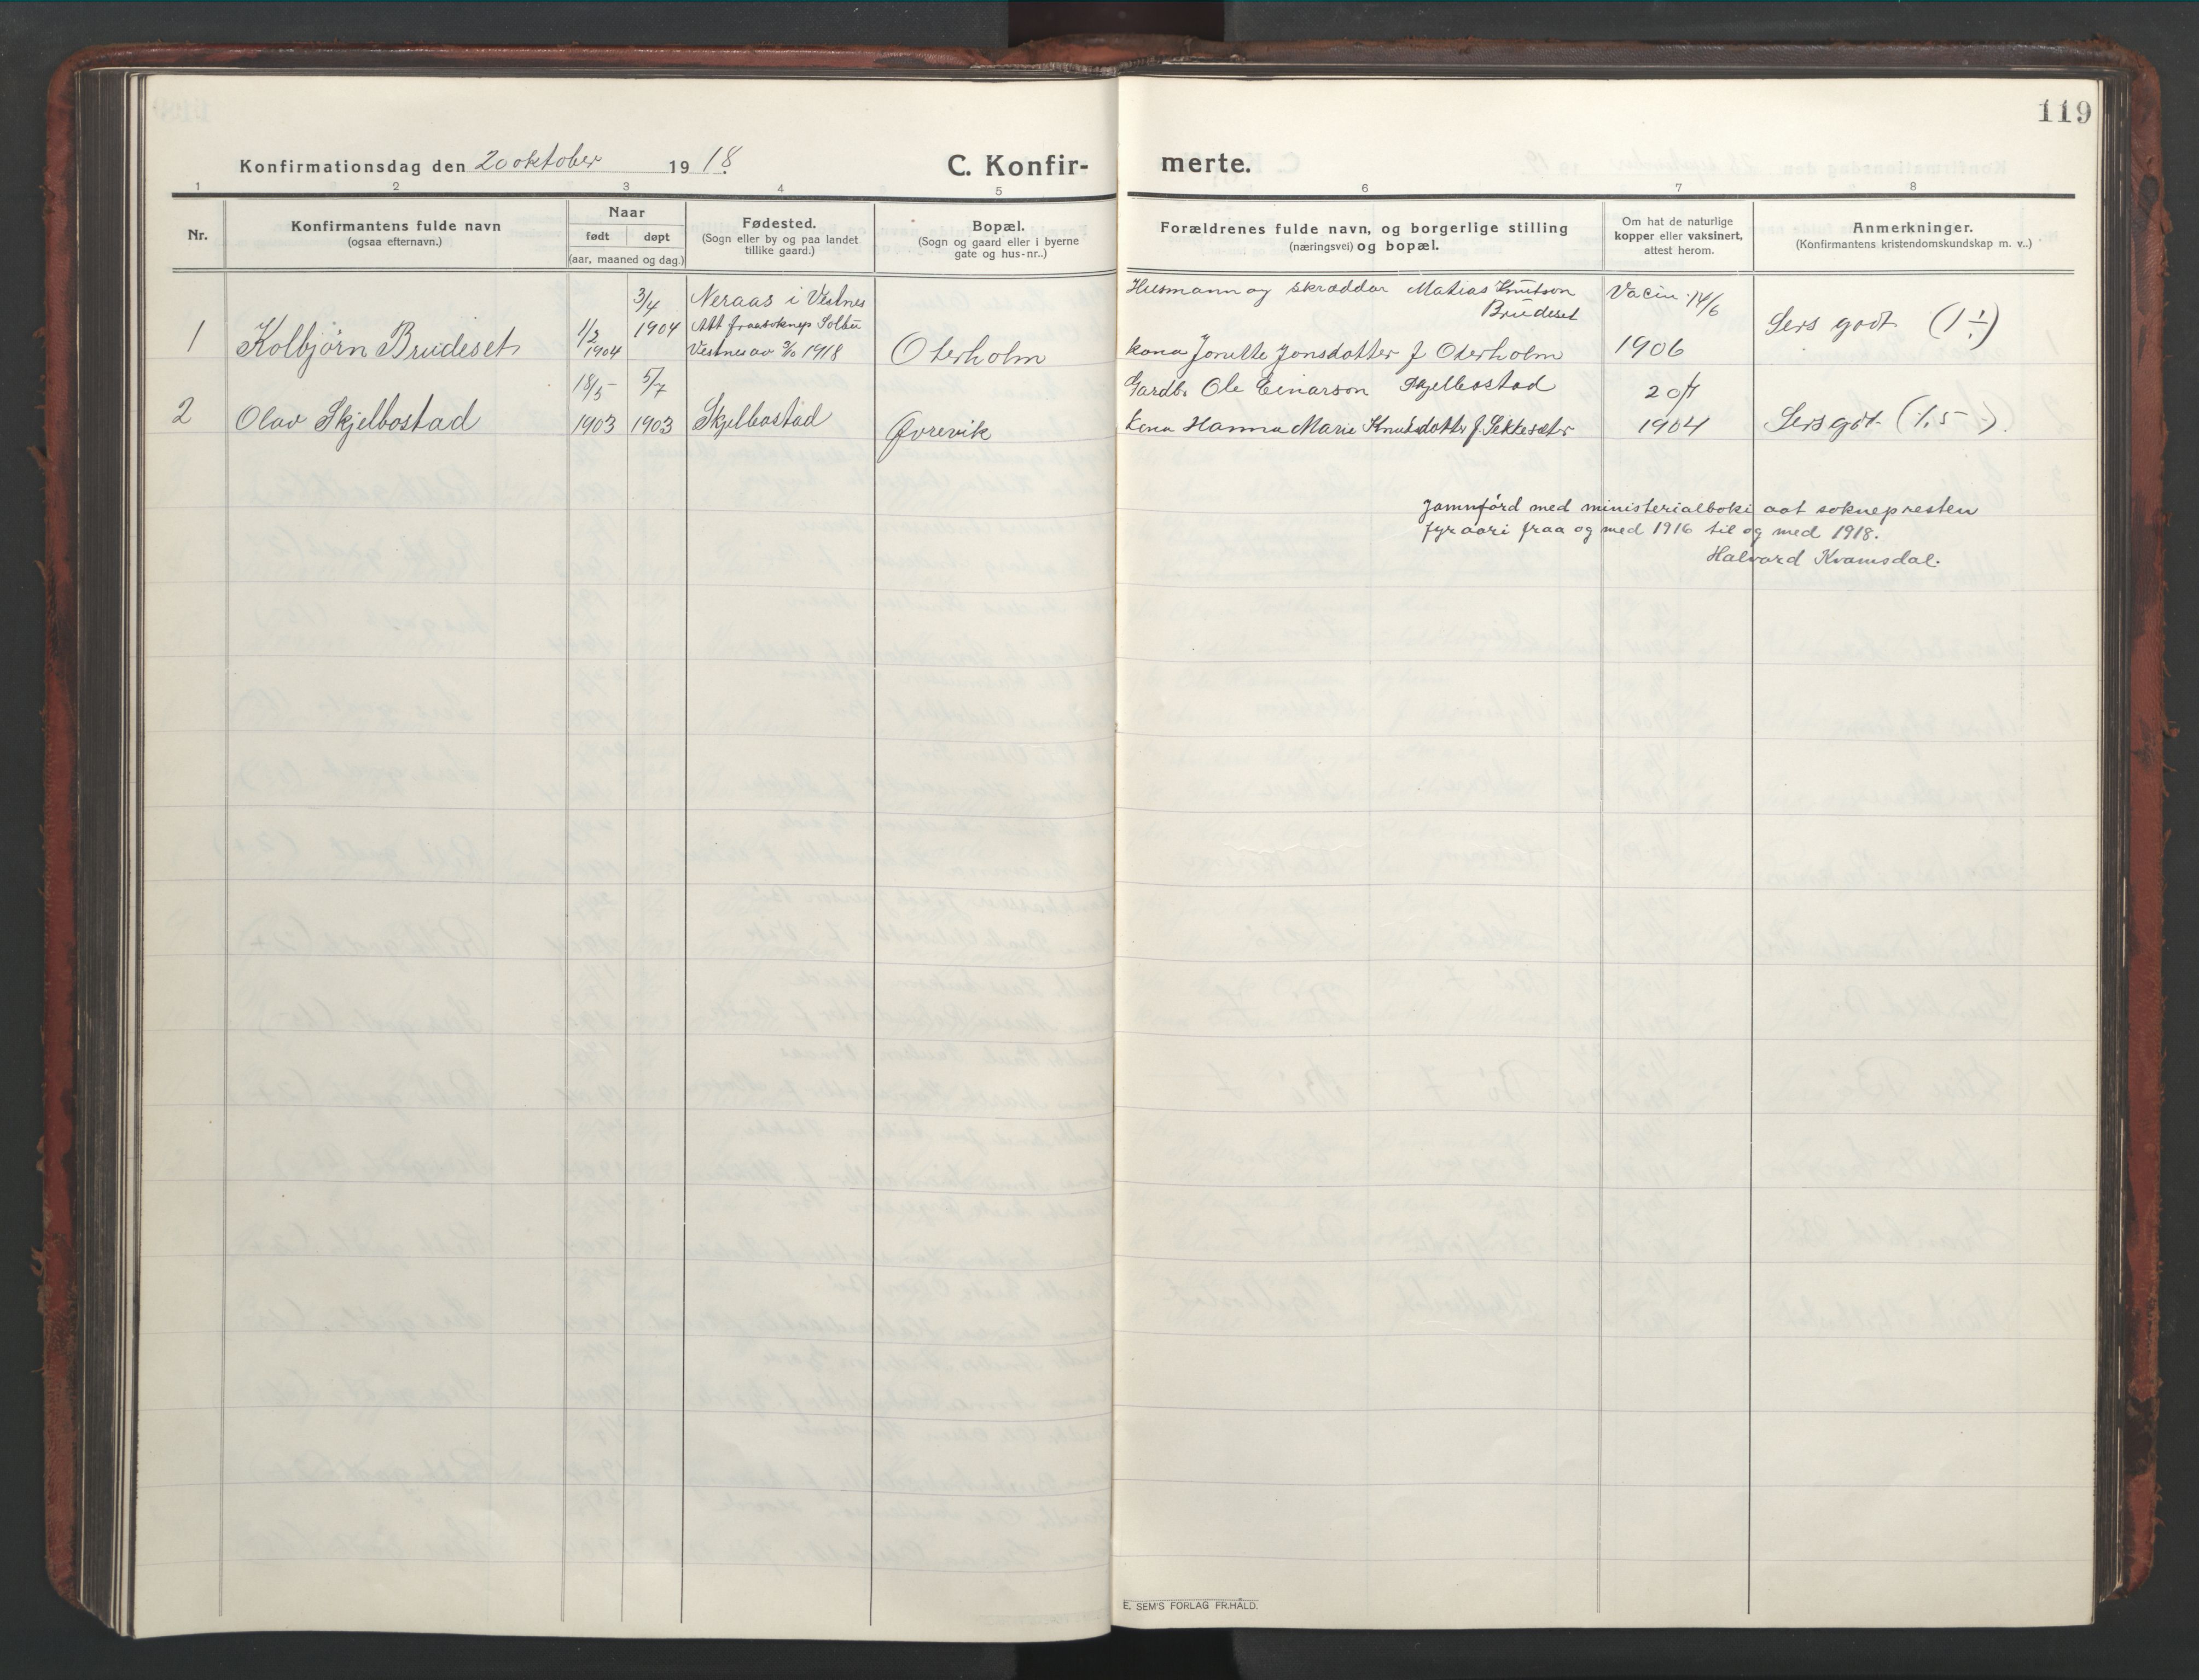 119
Konfirmationsdag den 20 oktober 1918.
C. Konfir- merte.
1 2 3 4 5 6 7 8
Nr.
Konfirmantens fulde navn
(ogsaa efternavn.)
Naar
født døpt
(aar, maaned og dag.)
Fødested.
(Sogn eller by og paa landet
tillike gaard.)
Bopæl.
(Sogn og gaard eller i byerne
gate og hus-nr..)
Forældrenes fulde navn, og borgerlige stilling
(næringsvei) og bopæl.
Om hat de naturlige
kopper eller vaksinert,
attest herom.
Anmerkninger.
(Konfirmantens kristendomskundskap m. v..)
1 Kolbjörn Brudeset
1/2
1904
3/4
1904
Neraas i Vestnes
Att fraa soknep
Vestnes av 1918
Oterholm
Husmann og skræddar Matias Knutson
Brudeset
kona Jonette Jonsdotter f Oterholm
Vacin. 14/6
1906
Sers godt (1 ÷)
2 Olav Skjelbostad
18/5
1903
5/7
1903
Skjelbostad
Øvrevik
Gardbr Ole Einarson Skjelbostad
kona Hanna Marie Knutsdotter f. Sekkesæter
1904
Sers godt (1,5 -).
Jamnförd med ministerialboki aat soknepresten
fyr aari fraa og med 1916 til og med 1918.
Halvard Kvamsdal.
E. SEM'S FORLAG FR.HALD.